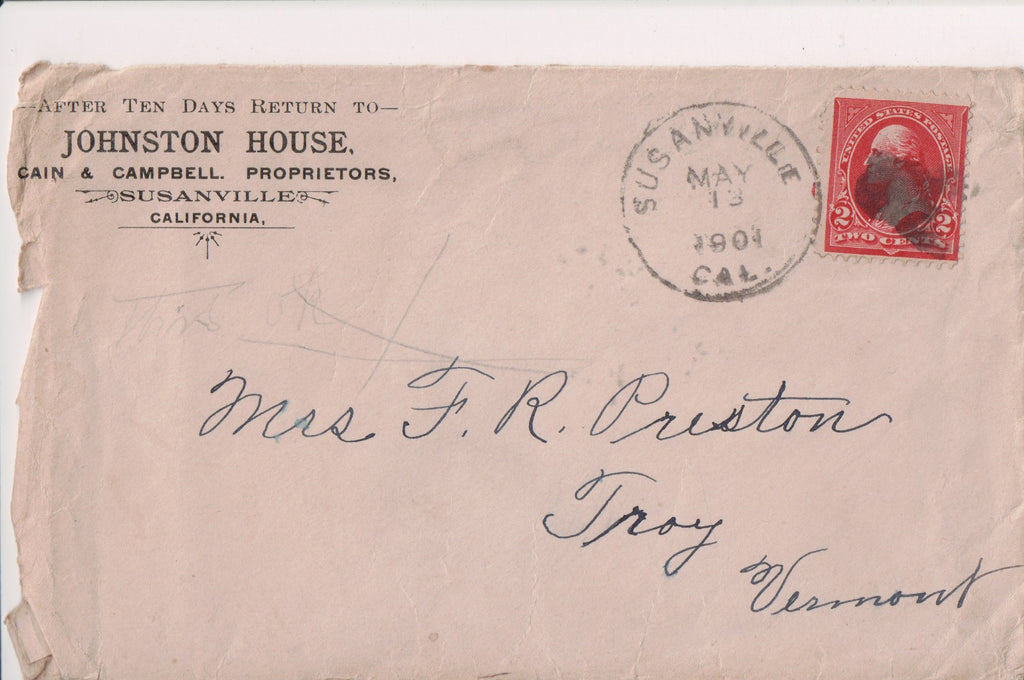 —AFTER TEN DAYS RETURN TO—
JOHNSTON HOUSE,
CAIN & CAMPBELL. PROPRIETORS,
SUSANVILLE
CALIFORNIA,
SUSANVILLE
MAY
13
1901
CAL.
UNITED STATES POSTAGE
2 2
TWO CENTS
Mrs F. R. Preston
Troy
Vermont